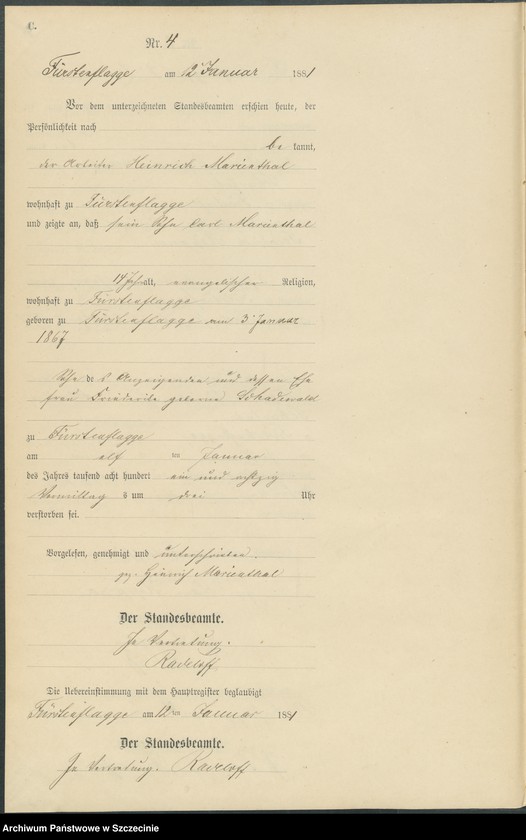 C.
Nr. 4
Fürstenflagge am 12ten Januar 1881
Vor dem unterzeichneten Standesbeamten erschien heute, der
Persönlichkeit nach
be kannt,
der Arbeiter Heinrich Marienthal
wohnhaft zu Fürstenflagge
und zeigte an, daß sein Sohn Carl Marienthal
14 Jahr alt, evangelischer Religion,
wohnhaft zu Fürstenflagge
geboren zu Fürstenflagge am 3ten Januar
1867
Sohn des Anzeigenden und dessen Ehe
frau Friederike geborene Schadewald
zu Fürstenflagge
am elf ten Januar
des Jahres tausend acht hundert ein und achtzig
Vormittag s um drei Uhr
verstorben sei.
Vorgelesen, genehmigt und unterschrieben.
gez. Heinrich Marienthal
Der Standesbeamte.
In Vertretung.
Radeloff
Die Uebereinstimmung mit dem Hauptregister beglaubigt
Fürstenflagge am 12ten Januar 1881
Der Standesbeamte.
In Vertretung. Radeloff
Archiwum Państwowe w Szczecinie